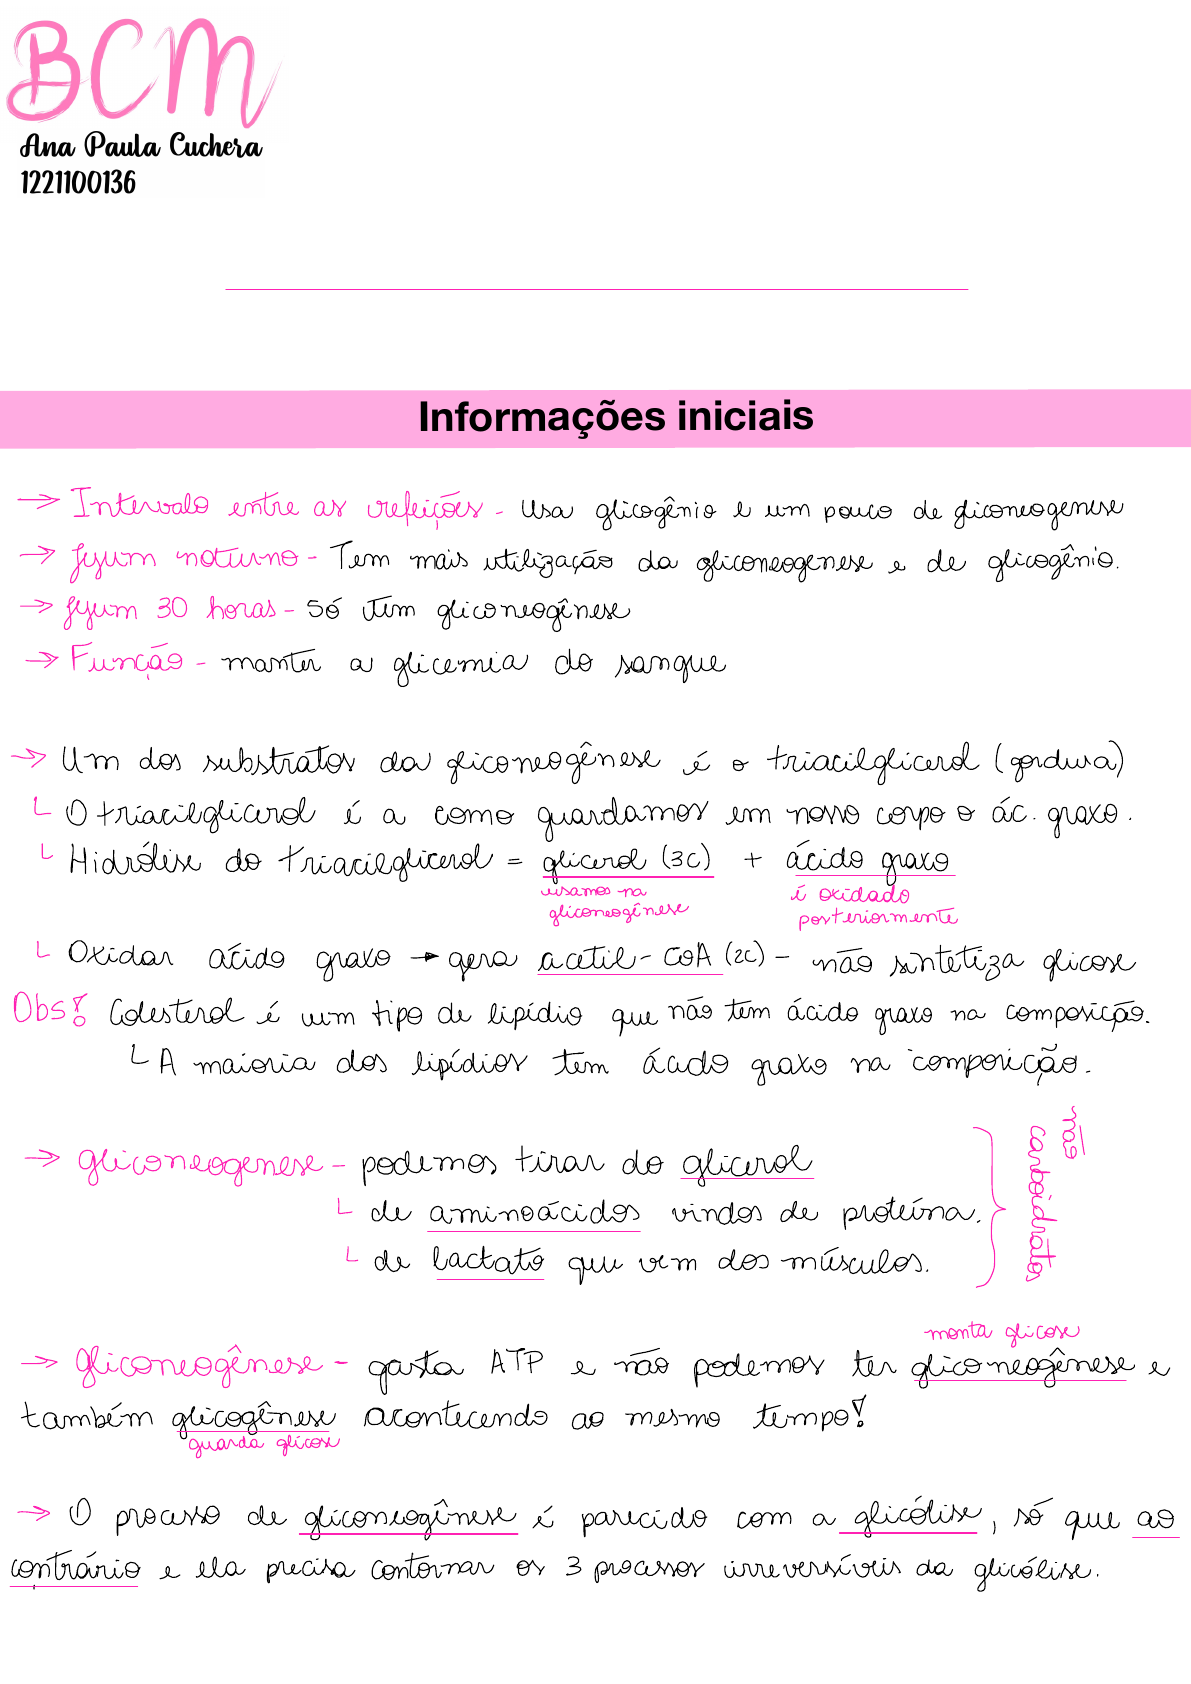 BCM
Ana Paula Cuchera
1221100136
Informações iniciais
→ Intervalo entre as refeições - Usa glicogênio e um pouco de gliconeogenese
→ Jejum noturno - Tem mais utilização da gliconeogenese e de glicogênio.
→ Jejum 30 horas - Só tem gliconeogênese
→ Função - manter a glicemia do sangue
→ Um dos substratos da gliconeogênese é o triacilglicerol (gordura)
└ O triacilglicerol é a como guardamos em nosso corpo o ác. graxo.
└ Hidrólise do triacilglicerol = glicerol (3C) + ácido graxo
usamos na gliconeogênese
é oxidado posteriormente
└ Oxidar ácido graxo → gera acetil-CoA (2C) - não sintetiza glicose
Obs! Colesterol é um tipo de lipídio que não tem ácido graxo na composição.
└ A maioria dos lipídios tem ácido graxo na composição.
→ gliconeogenese - podemos tirar do glicerol
└ de aminoácidos vindos de proteína.
└ de lactato que vem dos músculos.
não carboidratos
monta glicose
→ Gliconeogênese - gasta ATP e não podemos ter gliconeogênese e
também glicogênese acontecendo ao mesmo tempo!
guarda glicose
→ O processo de gliconeogênese é parecido com a glicólise, só que ao
contrário e ela precisa contornar os 3 processos irreversíveis da glicólise.